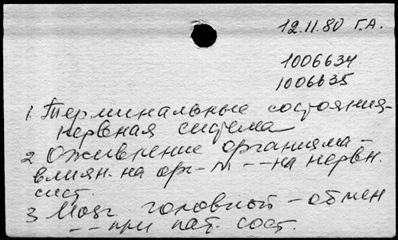 12.11.80 Г.А.
1006634
1006635
1 Терминальные состояния-
нервная система
2 Оживление организма-
влиян. на орг-м -- на нервн.
сист.
3 Мозг головной - обмен
-- при пат. сост.